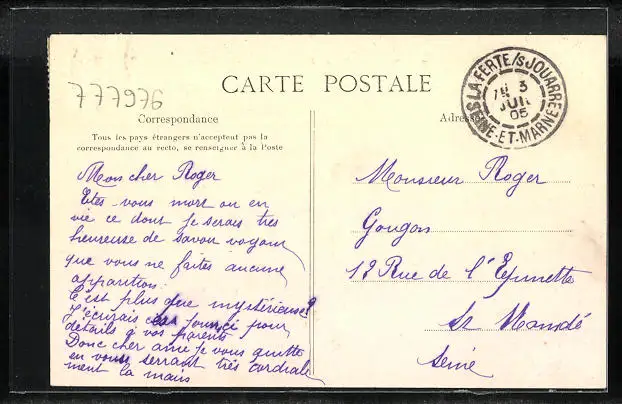 777976
CARTE POSTALE
Correspondance
Tous les pays étrangers n'acceptent pas la
correspondance au recto, se renseigner à la Poste
Mon cher Roger
Etes-vous mort ou en
vie ce dont je serais très
heureuse de savoir voyant
que vous ne faites aucune
apparition.
C'est plus que mystérieuse?
J'écrirais pour
détails à vos parents
Donc cher ami je vous quitte
en vous serrant très cordiale
ment la main
Adresse
LA FERTE/S JOUARRE
3
JUIN
05
SEINE-ET-MARNE
Monsieur Roger
Gougon
13 Rue de l'Epinette
St Mandé
Seine